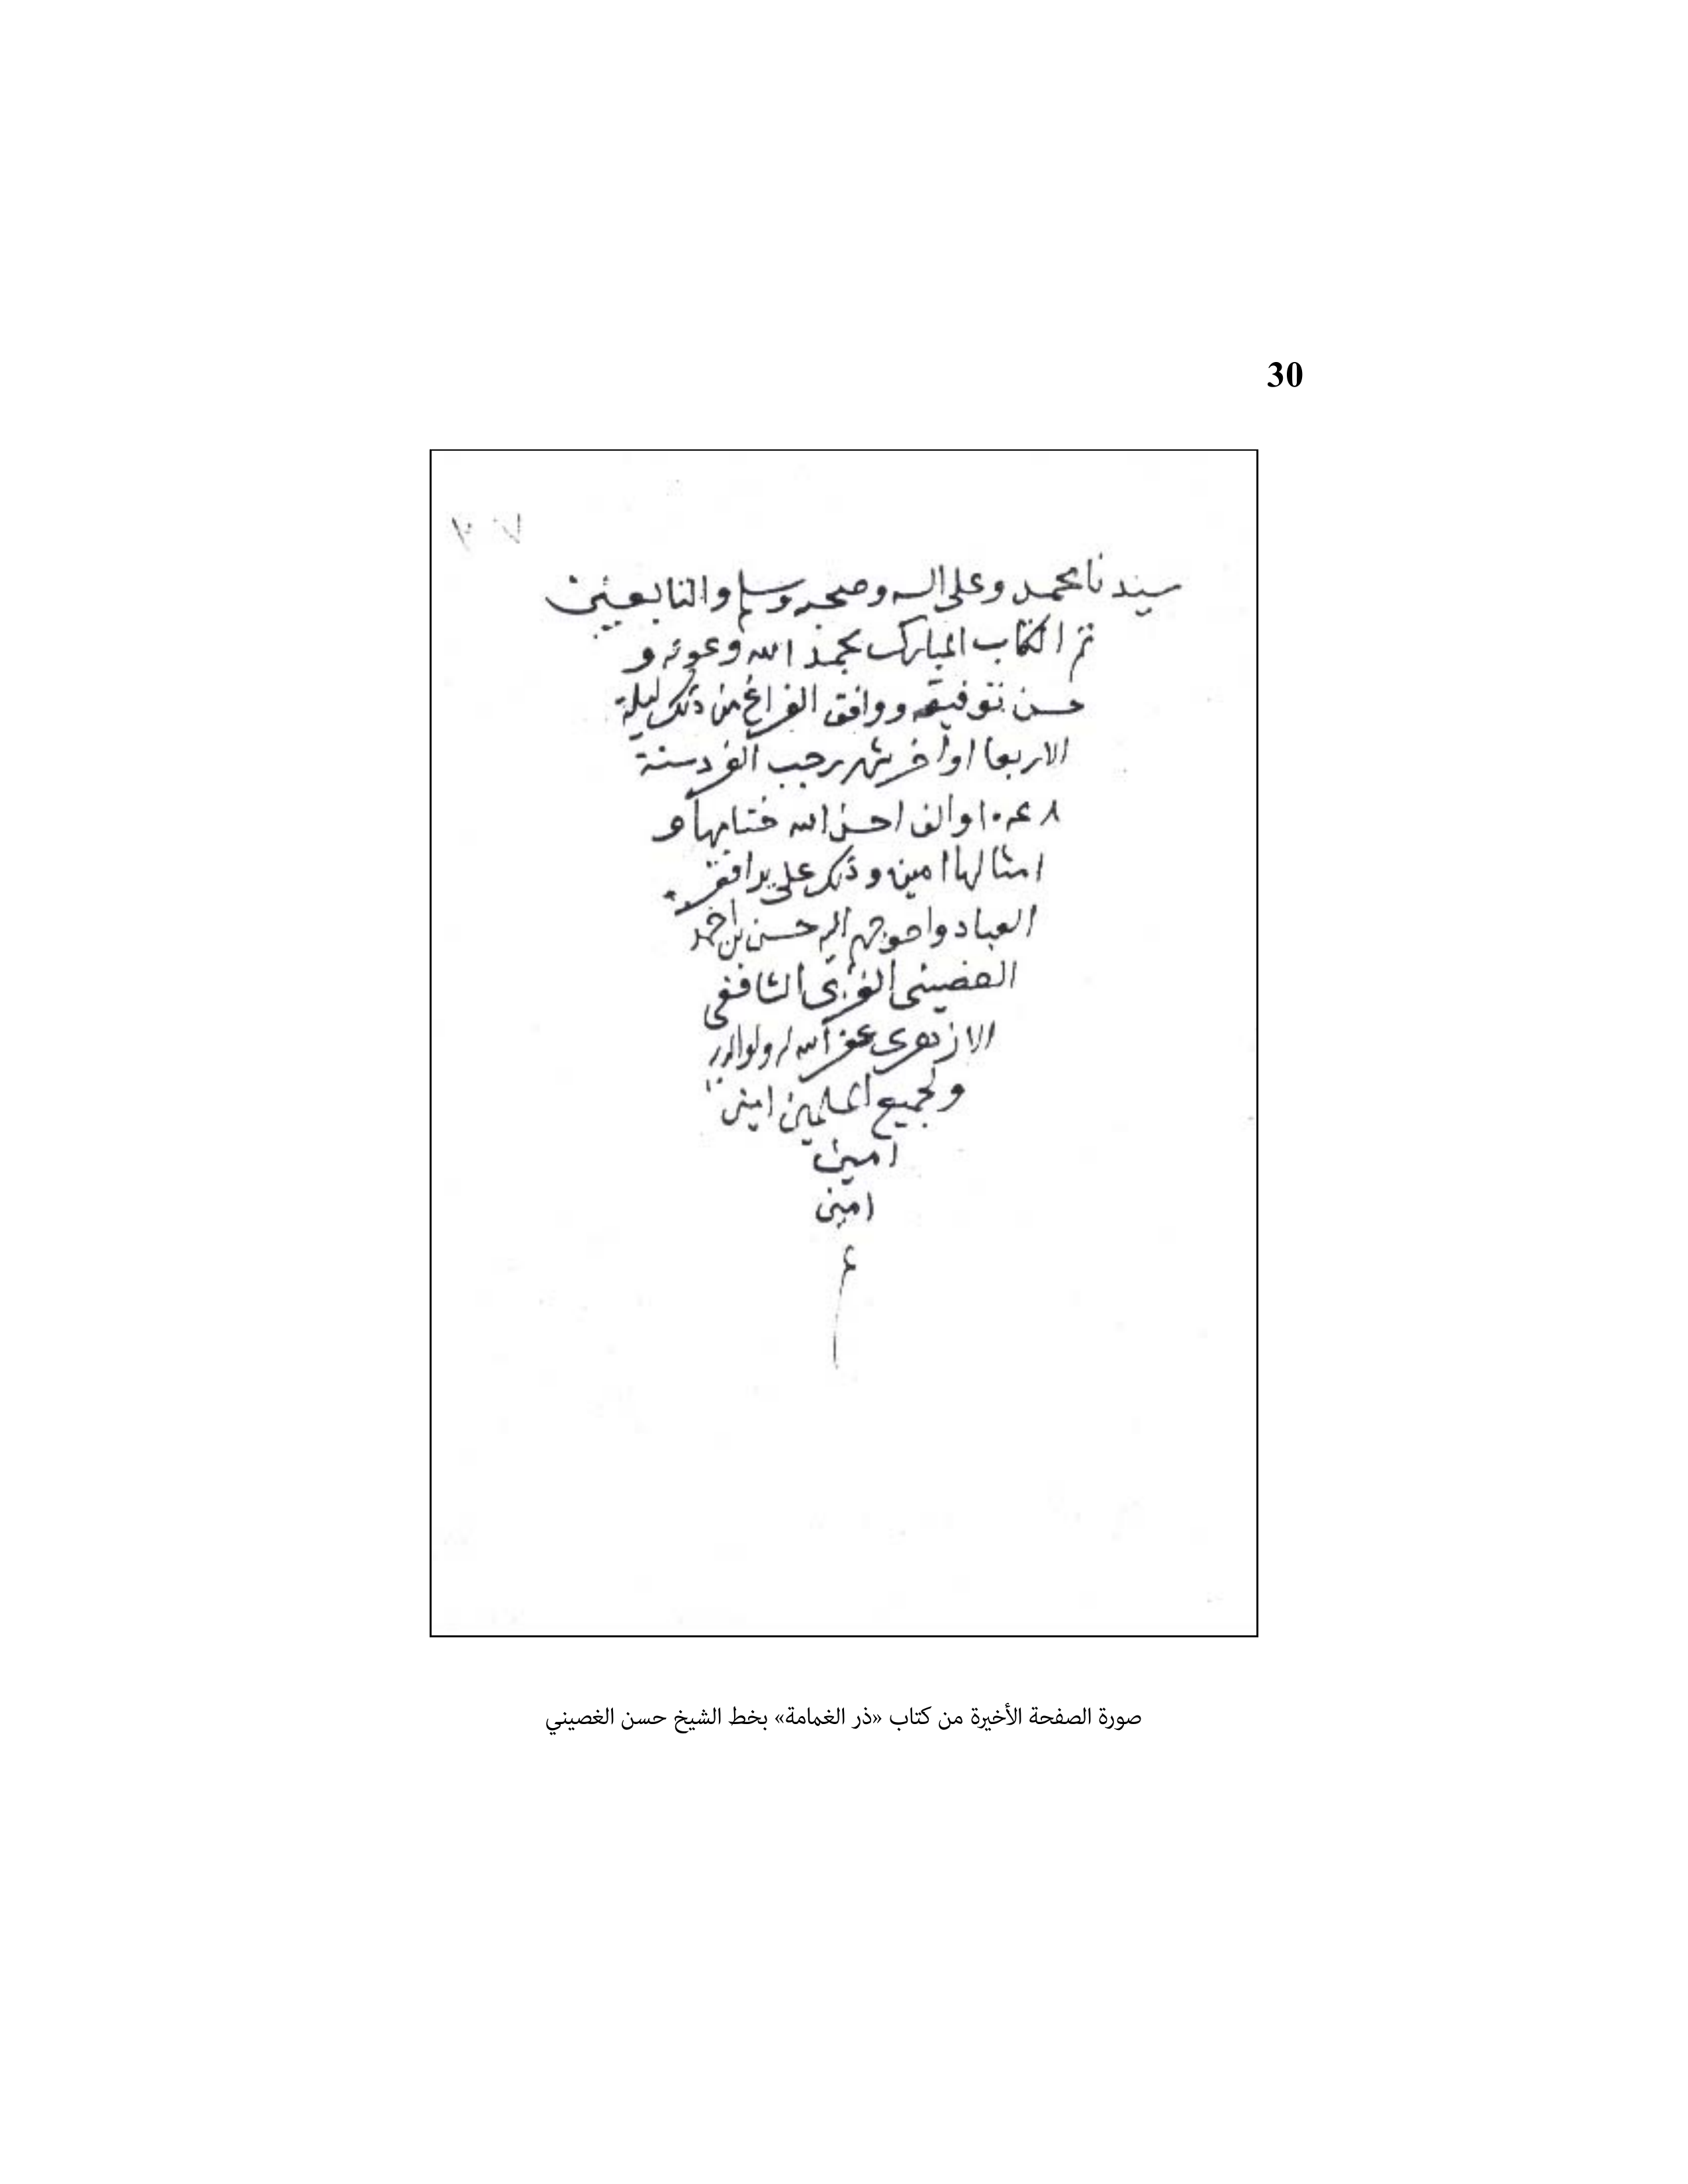 30
سيدنا محمد وعلى اله وصحبه وسلم والتابعين
تم الكتاب المبارك بحمد الله وعونه و
حسن توفيقه ووافق الفراغ من ذلك ليلة
الاربعا اواخر شهر رجب الفرد سنة
والف احسن الله ختامها و
امثالها امين وذلك على يد افقر
العباد واحوجهم اليه حسن بن احمد
الغصينى الغزى الشافعى
الازهرى غفر الله له ولوالديه
ولجميع المسلمين امين
امين
امين
م
صورة الصفحة الأخيرة من كتاب «ذر الغمامة» بخط الشيخ حسن الغصيني